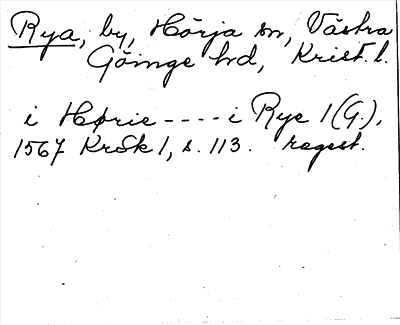 Rya, by, Hörja sn, Västra
Göinge hd, Krist. l.
i Hørie ---- i Rye 1 (G.).
1567 KrSk 1, s. 113. regest.